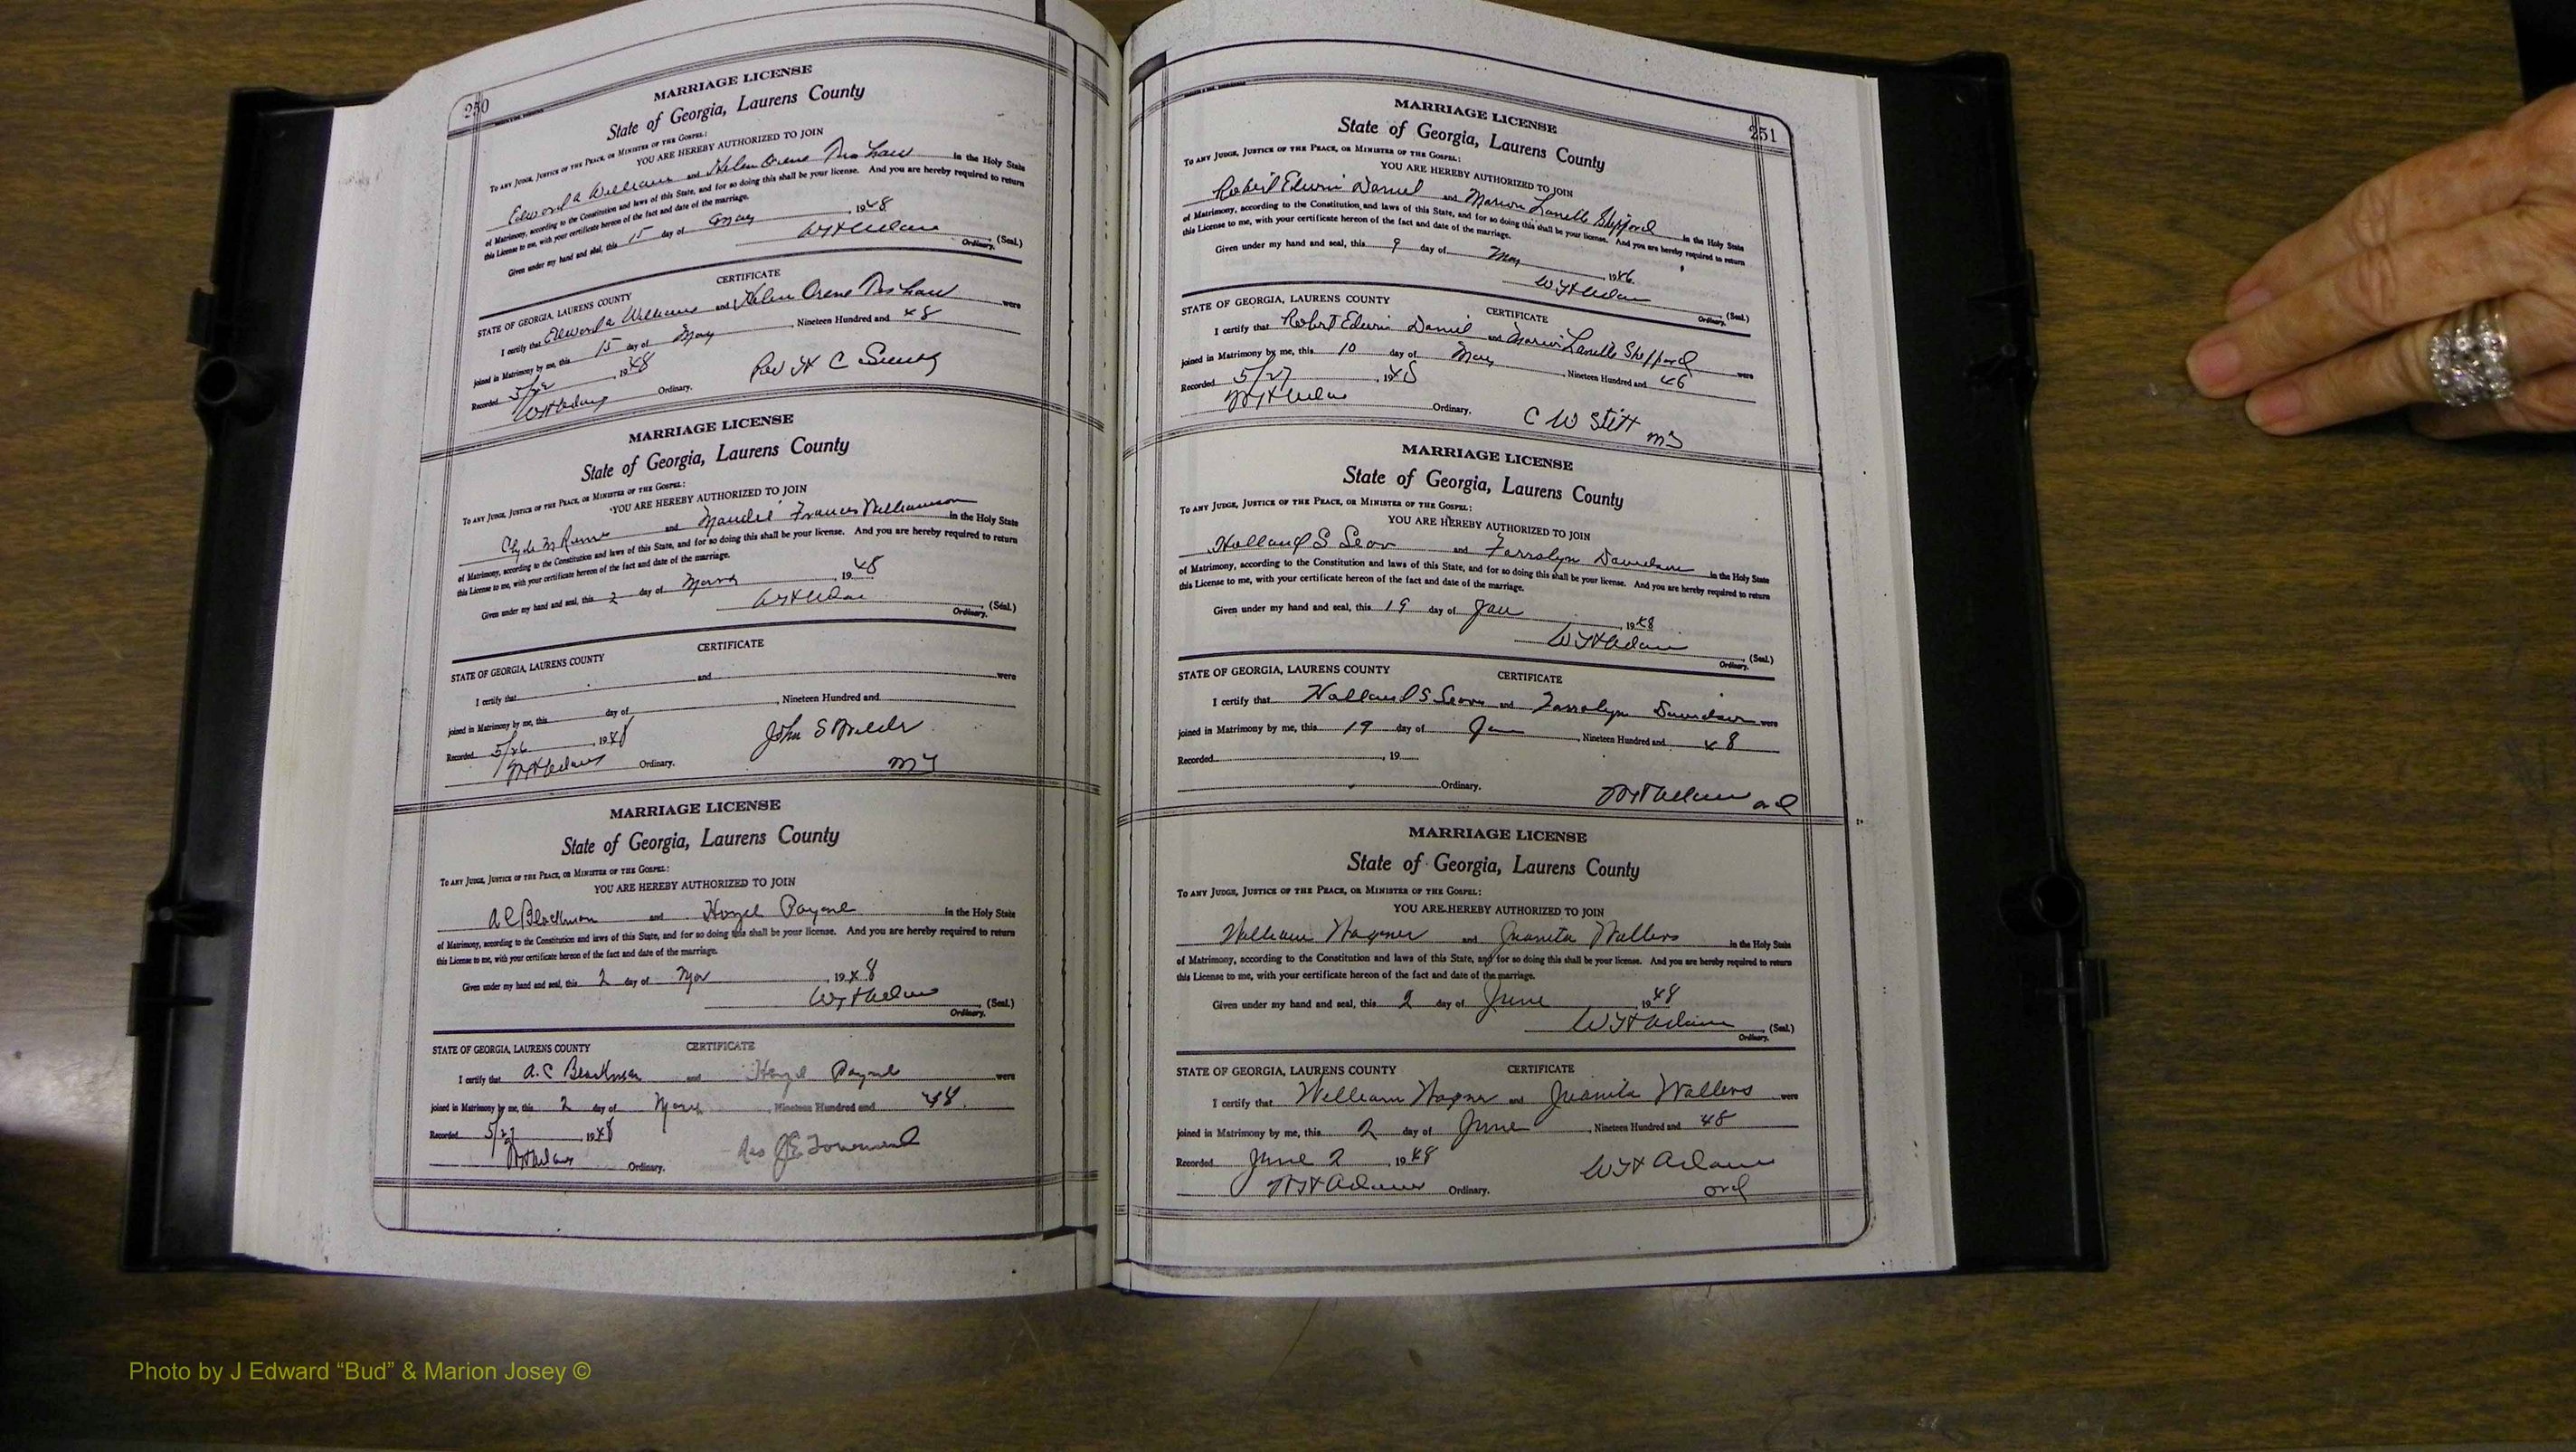 250
MARRIAGE LICENSE
State of Georgia, Laurens County
To any Judge, Justice of the Peace, or Minister of the Gospel:
YOU ARE HEREBY AUTHORIZED TO JOIN
and Helen in the Holy State
of Matrimony, according to the Constitution and laws of this State, and for so doing this shall be your license. And you are hereby required to return
this License to me, with your certificate hereon of the fact and date of the marriage.
Given under my hand and seal, this 15 day of May 1948
(Seal.)
Ordinary.
CERTIFICATE
STATE OF GEORGIA, LAURENS COUNTY
I certify that Edward a Williams and Helen were
joined in Matrimony by me, this 15 day of May, Nineteen Hundred and 48
Recorded 1948
Ordinary. Rev H C
MARRIAGE LICENSE
State of Georgia, Laurens County
To any Judge, Justice of the Peace, or Minister of the Gospel:
YOU ARE HEREBY AUTHORIZED TO JOIN
Clyde and Frances Williamson in the Holy State
of Matrimony, according to the Constitution and laws of this State, and for so doing this shall be your license. And you are hereby required to return
this License to me, with your certificate hereon of the fact and date of the marriage.
Given under my hand and seal, this 2 day of 1948
(Seal.)
Ordinary.
CERTIFICATE
STATE OF GEORGIA, LAURENS COUNTY
I certify that and were
joined in Matrimony by me, this day of , Nineteen Hundred and
Recorded 5/26, 1948 John S
Ordinary.
MARRIAGE LICENSE
State of Georgia, Laurens County
To any Judge, Justice of the Peace, or Minister of the Gospel:
YOU ARE HEREBY AUTHORIZED TO JOIN
A C Blackmon and Hazel Payne in the Holy State
of Matrimony, according to the Constitution and laws of this State, and for so doing this shall be your license. And you are hereby required to return
this License to me, with your certificate hereon of the fact and date of the marriage.
Given under my hand and seal, this 2 day of Mar, 1948
(Seal.)
Ordinary.
STATE OF GEORGIA, LAURENS COUNTY CERTIFICATE
I certify that A.C Blackmon and Hazel Payne were
joined in Matrimony by me, this 2 day of March, Nineteen Hundred and 48.
Recorded 5/27, 1948
Ordinary. J E Townsend
251
MARRIAGE LICENSE
State of Georgia, Laurens County
To any Judge, Justice of the Peace, or Minister of the Gospel:
YOU ARE HEREBY AUTHORIZED TO JOIN
Robert Edwin Daniel and Marion Lanelle Sheppard in the Holy State
of Matrimony, according to the Constitution and laws of this State, and for so doing this shall be your license. And you are hereby required to return
this License to me, with your certificate hereon of the fact and date of the marriage.
Given under my hand and seal, this 9 day of May 1946.
(Seal.)
Ordinary.
STATE OF GEORGIA, LAURENS COUNTY CERTIFICATE
I certify that Robert Edwin Daniel and Marion Lanelle Sheppard were
joined in Matrimony by me, this 10 day of May, Nineteen Hundred and 46
Recorded 5/27, 1948
Ordinary. C W Stitt
MARRIAGE LICENSE
State of Georgia, Laurens County
To any Judge, Justice of the Peace, or Minister of the Gospel:
YOU ARE HEREBY AUTHORIZED TO JOIN
Holland S and Farralyn Davidson in the Holy State
of Matrimony, according to the Constitution and laws of this State, and for so doing this shall be your license. And you are hereby required to return
this License to me, with your certificate hereon of the fact and date of the marriage.
Given under my hand and seal, this 19 day of Jan, 1948
(Seal.)
Ordinary.
STATE OF GEORGIA, LAURENS COUNTY CERTIFICATE
I certify that Holland S and Farralyn Davidson were
joined in Matrimony by me, this 19 day of Jan, Nineteen Hundred and 48
Recorded , 19
Ordinary.
MARRIAGE LICENSE
State of Georgia, Laurens County
To any Judge, Justice of the Peace, or Minister of the Gospel:
YOU ARE HEREBY AUTHORIZED TO JOIN
William Wagner and Juanita Walters in the Holy State
of Matrimony, according to the Constitution and laws of this State, and for so doing this shall be your license. And you are hereby required to return
this License to me, with your certificate hereon of the fact and date of the marriage.
Given under my hand and seal, this 2 day of June, 1948
W H Adams (Seal.)
Ordinary.
STATE OF GEORGIA, LAURENS COUNTY CERTIFICATE
I certify that William Wagner and Juanita Walters were
joined in Matrimony by me, this 2 day of June, Nineteen Hundred and 48
Recorded June 2, 1948 W H Adams
W H Adams Ordinary. ord
Photo by J Edward “Bud” & Marion Josey ©